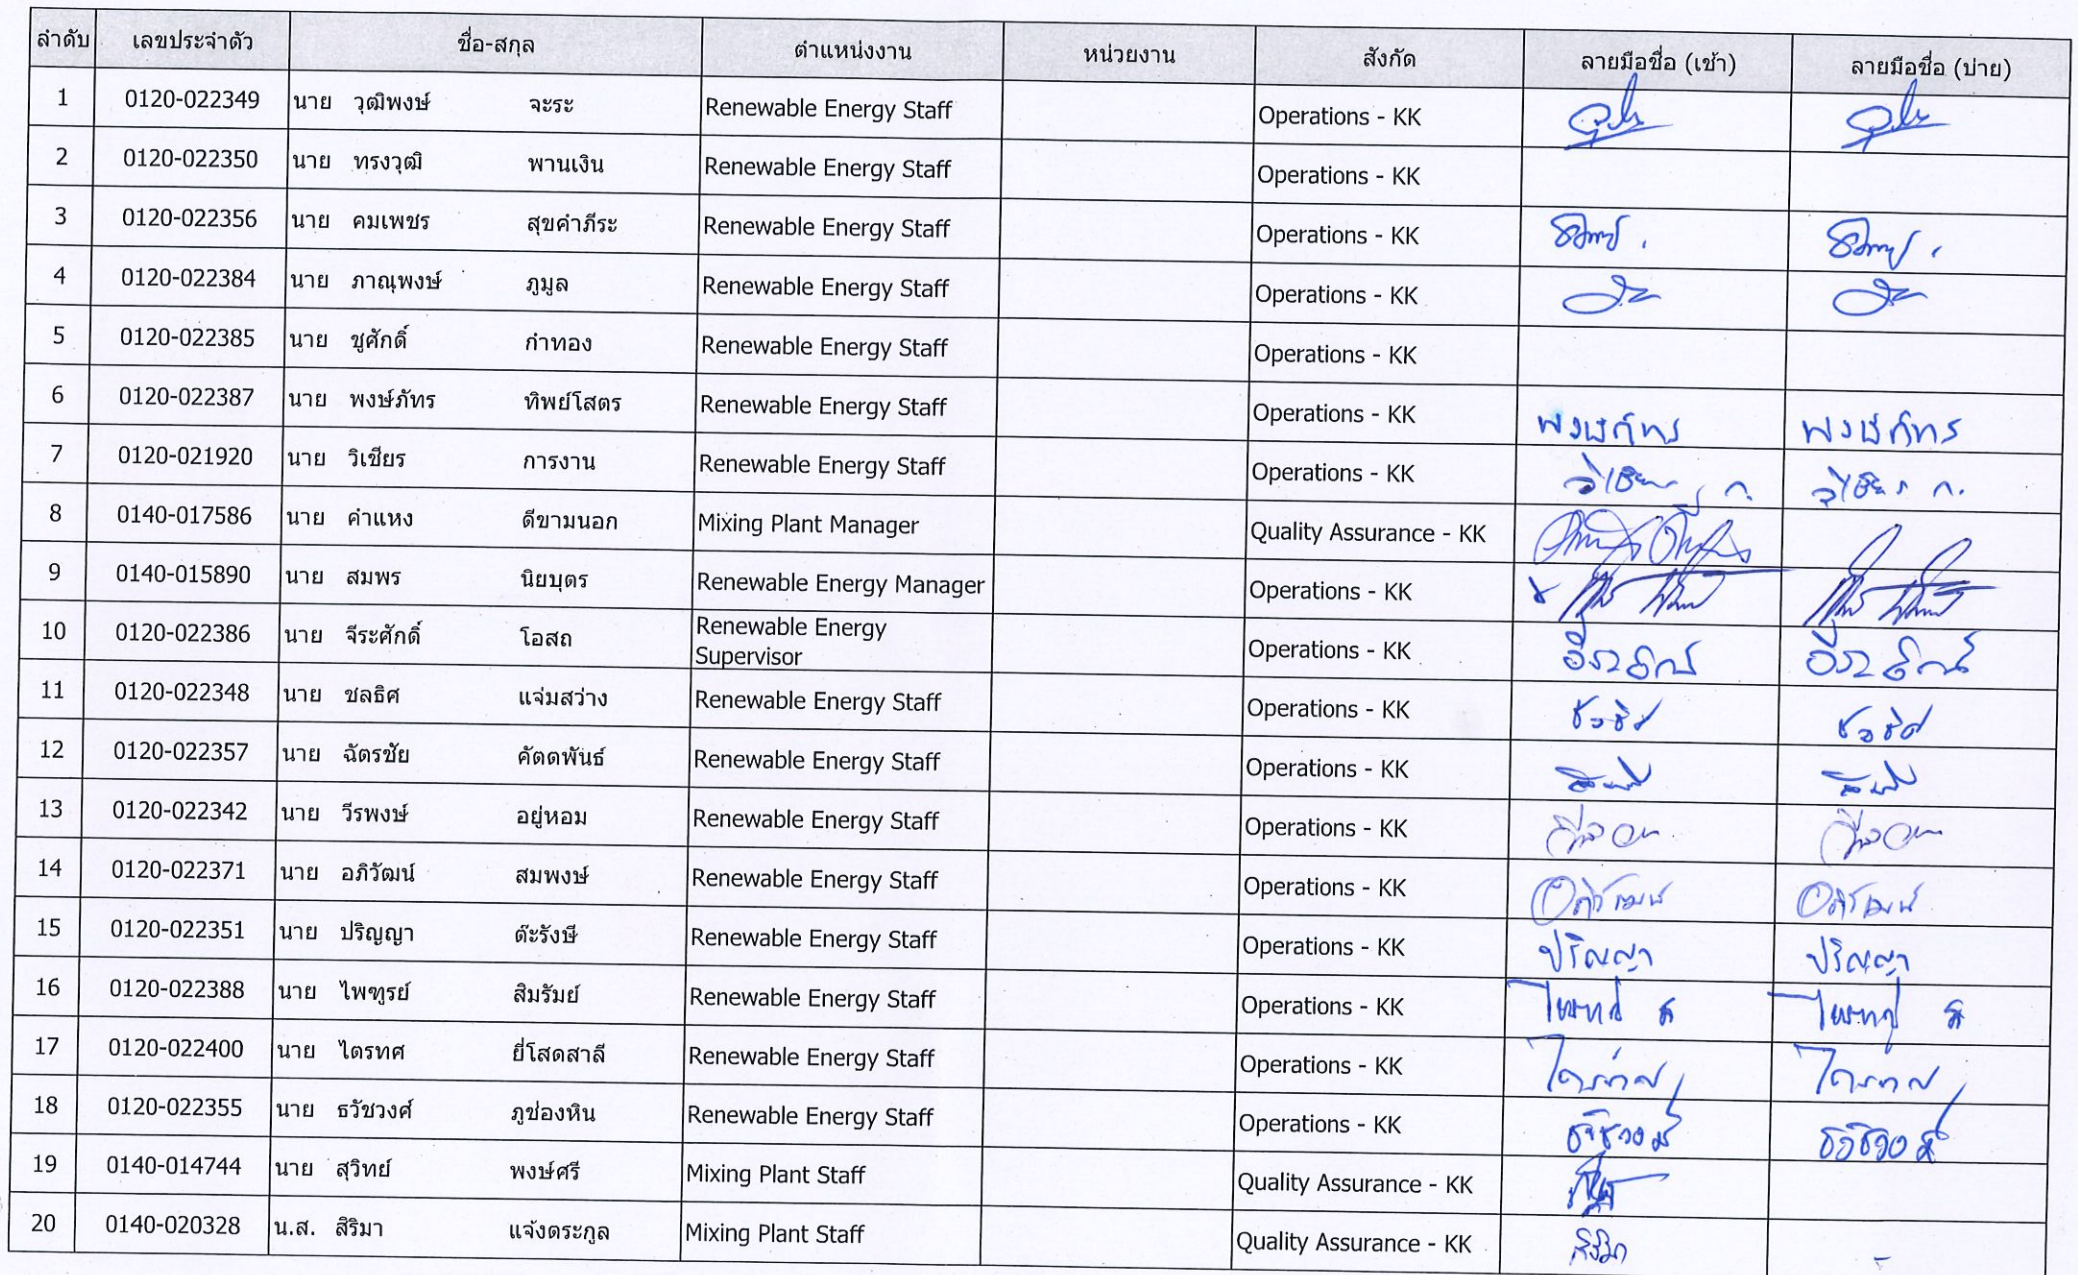 ลำดับ เลขประจำตัว ชื่อ-สกุล ตำแหน่งงาน หน่วยงาน สังกัด ลายมือชื่อ (เช้า) ลายมือชื่อ (บ่าย)
1 0120-022349 นาย วุฒิพงษ์ จะระ Renewable Energy Staff Operations - KK
2 0120-022350 นาย ทรงวุฒิ พานเงิน Renewable Energy Staff Operations - KK
3 0120-022356 นาย คมเพชร สุขคำภีระ Renewable Energy Staff Operations - KK
4 0120-022384 นาย ภาณุพงษ์ ภูมูล Renewable Energy Staff Operations - KK
5 0120-022385 นาย ชูศักดิ์ กำทอง Renewable Energy Staff Operations - KK
6 0120-022387 นาย พงษ์ภัทร ทิพย์โสตร Renewable Energy Staff Operations - KK พงษ์ภัทร พงษ์ภัทร
7 0120-021920 นาย วิเชียร การงาน Renewable Energy Staff Operations - KK วิเชียร ก. วิเชียร ก.
8 0140-017586 นาย คำแหง ดีขามนอก Mixing Plant Manager Quality Assurance - KK
9 0140-015890 นาย สมพร นิยบุตร Renewable Energy Manager Operations - KK
10 0120-022386 นาย จีระศักดิ์ โอสถ Renewable Energy Supervisor Operations - KK จีระศักดิ์ จีระศักดิ์
11 0120-022348 นาย ชลธิศ แจ่มสว่าง Renewable Energy Staff Operations - KK ชลธิศ ชลธิศ
12 0120-022357 นาย ฉัตรชัย คัตตพันธ์ Renewable Energy Staff Operations - KK
13 0120-022342 นาย วีรพงษ์ อยู่หอม Renewable Energy Staff Operations - KK
14 0120-022371 นาย อภิวัฒน์ สมพงษ์ Renewable Energy Staff Operations - KK อภิวัฒน์ อภิวัฒน์
15 0120-022351 นาย ปริญญา ต๊ะรังษี Renewable Energy Staff Operations - KK ปริญญา ปริญญา
16 0120-022388 นาย ไพฑูรย์ สิมรัมย์ Renewable Energy Staff Operations - KK ไพฑูรย์ ส ไพฑูรย์ ส
17 0120-022400 นาย ไตรทศ ยี่โสดสาลี Renewable Energy Staff Operations - KK ไตรทศ ไตรทศ
18 0120-022355 นาย ธวัชวงศ์ ภูช่องหิน Renewable Energy Staff Operations - KK ธวัชวงศ์ ธวัชวงศ์
19 0140-014744 นาย สุวิทย์ พงษ์ศรี Mixing Plant Staff Quality Assurance - KK
20 0140-020328 น.ส. สิริมา แจ้งตระกูล Mixing Plant Staff Quality Assurance - KK สิริมา